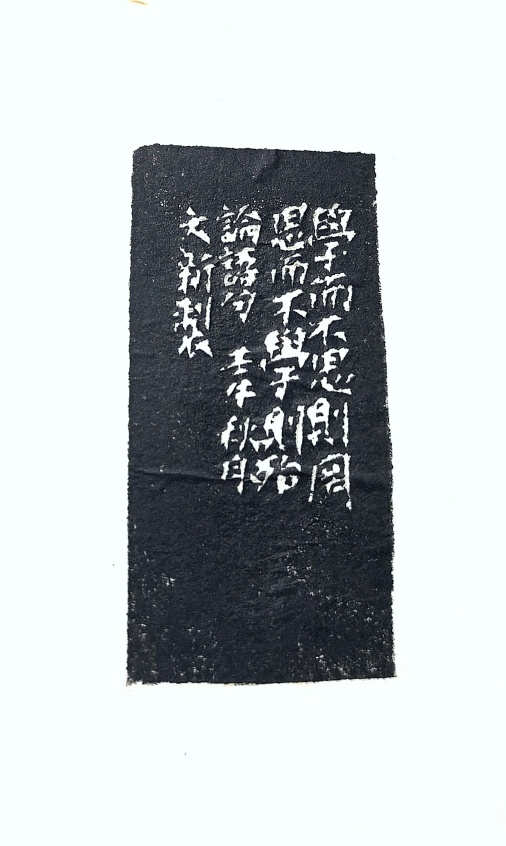 學而不思則罔
思而不學則殆
論語句 秋月
文新製